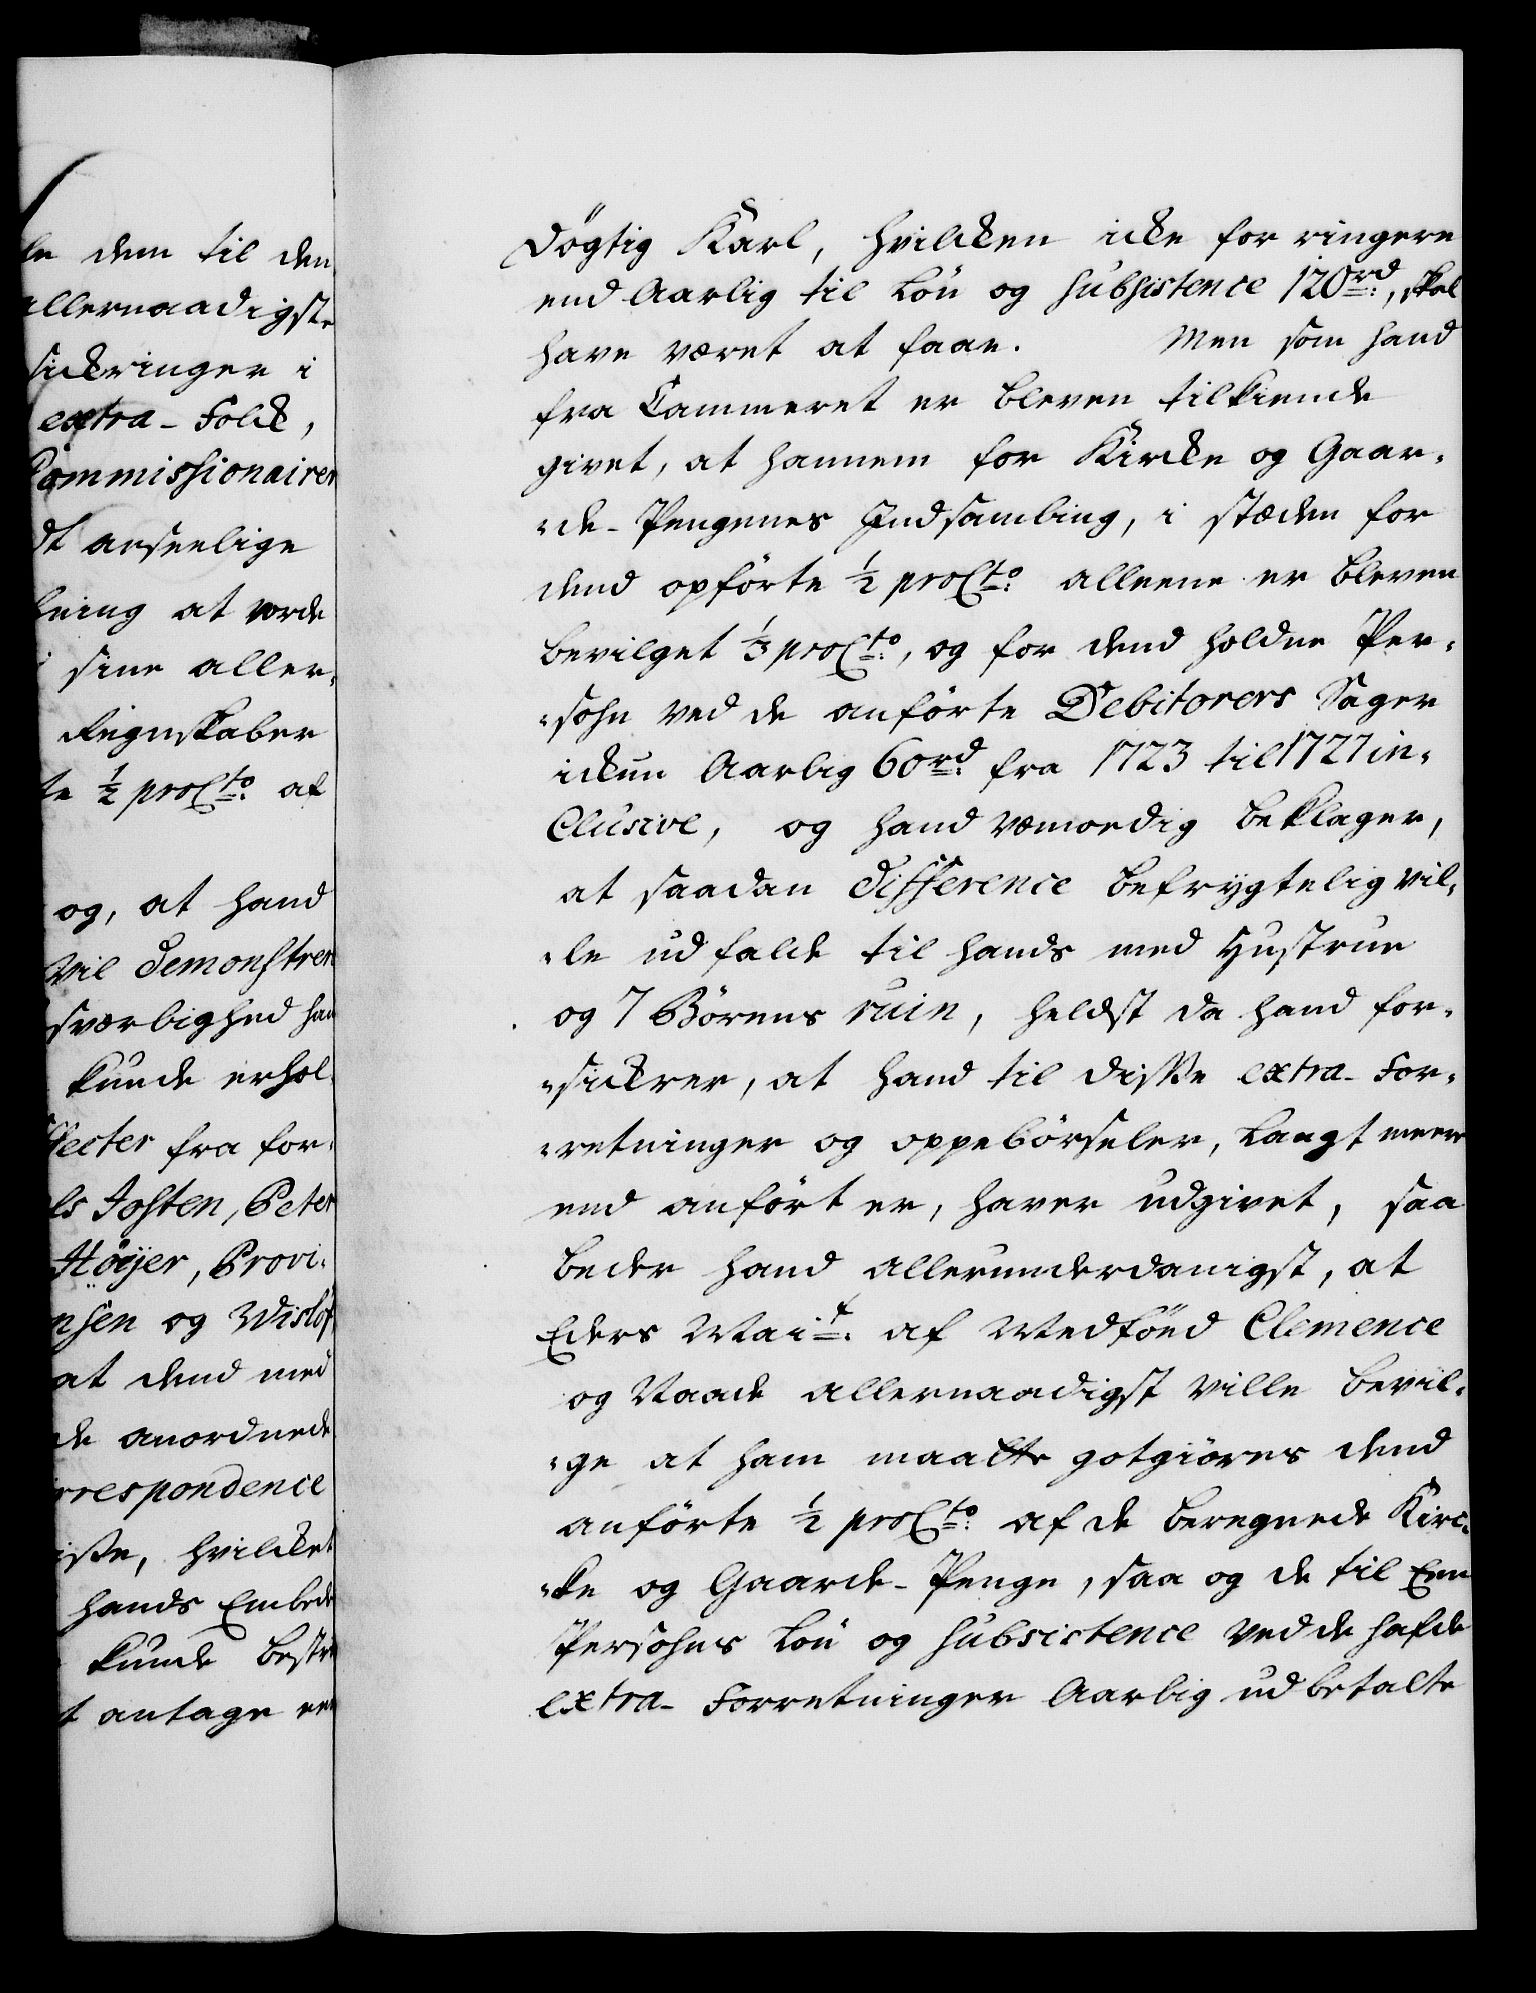 le dem til den
allernaadigste
sickringer i
extra-Folck,
Commissionairer
dt anseelige
ning at vorde
sine aller-
Regnskaber
te ½ proCto: af
og, at hand
vil demonstrere
sværlighed han
kunde erhol-
fecter fra for-
ls Josten, Peter
Höyer, Provi-
nsen og Wislof
at dend med
de anordnede
rrespondence
isse, hvilcket
hands Embede
kunde bestri
t antage een
Dögtig Karl, hvilcken icke for ringere
end Aarlig til Lön og Subsistence 120rd:, skal
have været at faae. Men som hand
fra Cammeret er bleven tilkiende
givet, at hannem for Kircke og Gaar-
-de-Pengenes Indsamling, i stæden for
dend opförte ½ proCto: alleene er bleven
bevilget ⅓ proCto:, og for dend holdne Per-
-sohn ved de anförte Debitorers Sager
ickun Aarlig 60rd: fra 1723 til 1727 in-
Clusive, og hand vemoedig beklager,
at saadan difference befrygtelig vil-
-le udfalde til hands med Hustrue
og 7 Börens ruin, heldst da hand for-
-sickrer, at hand til disse extra-For-
-retninger og oppebörseler, langt meere
end anfört er, haver udgivet, saa
beder hand allerunderdanigst, at
Eders Mait: af Medföd Clemence
og Naade allernaadigst ville bevil-
-ge at ham maatte gotgiöres dend
anförte ½ proCto: af de beregnede Kirc-
-ke og Gaarde-Penge, saa og de til Een
Persohns Lön og Subsistence ved de hafde
extra-Forretninger Aarlig udbetalte